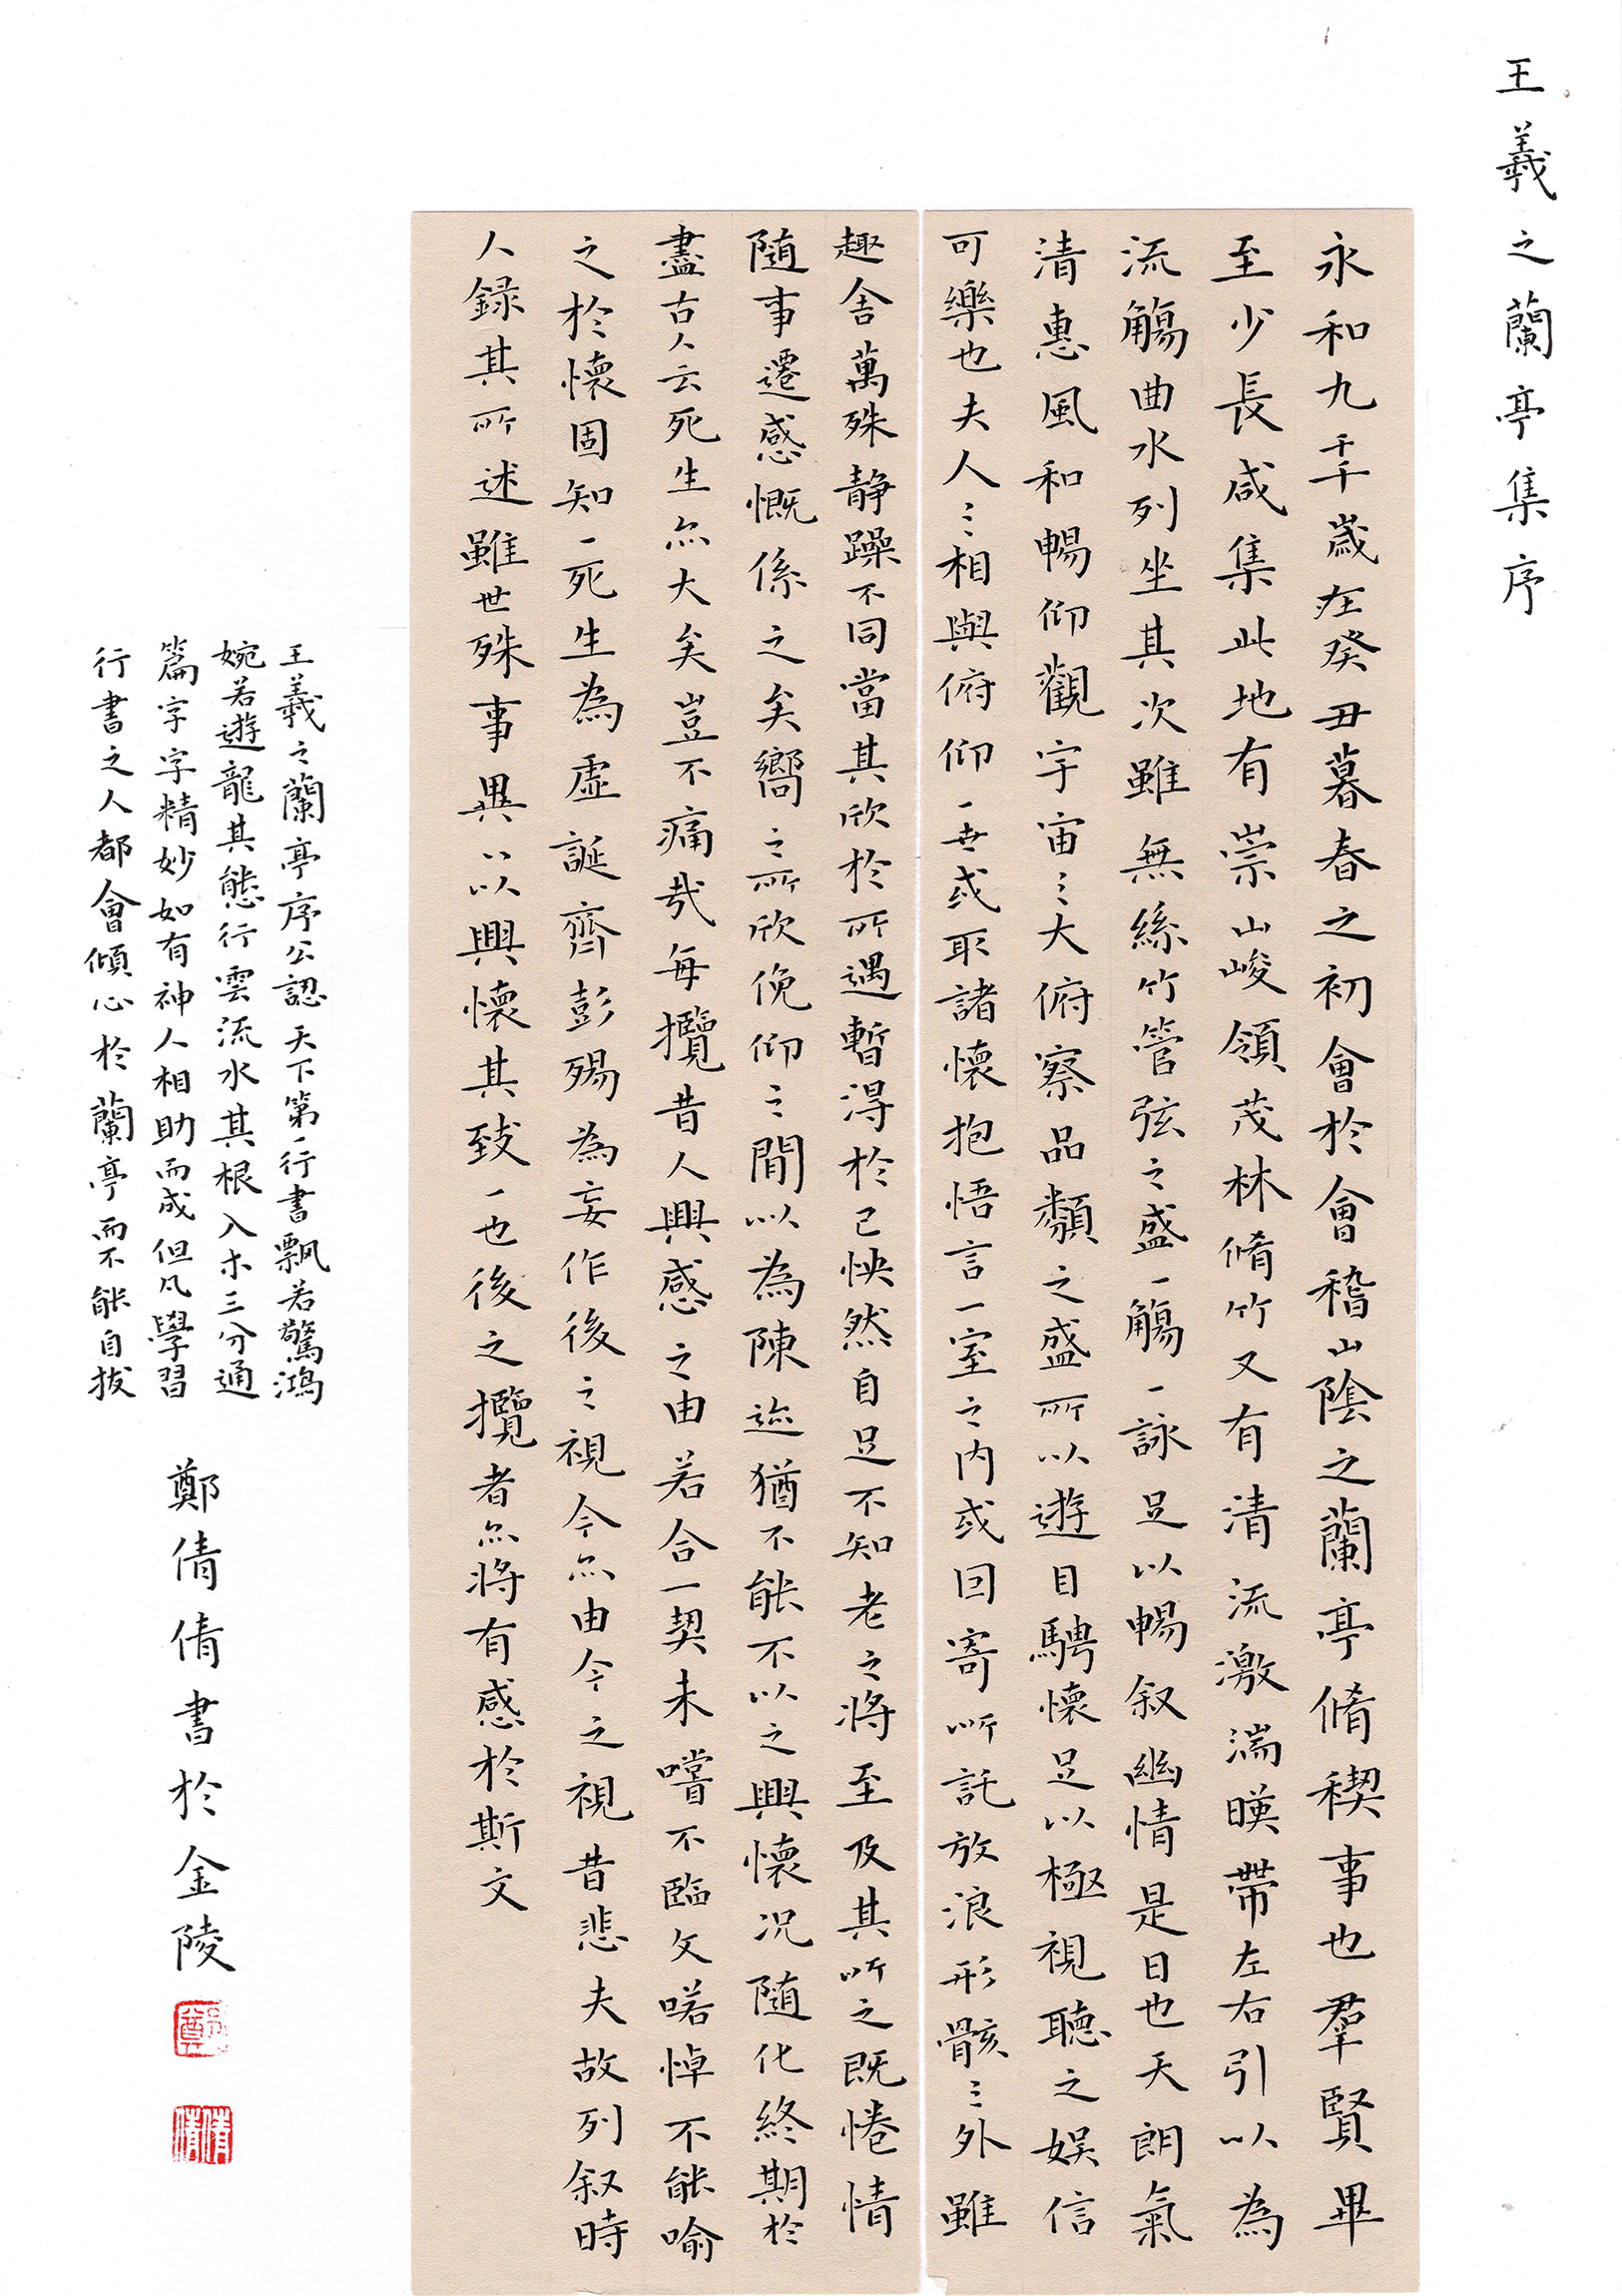 王羲之蘭亭集序
永和九年歲在癸丑暮春之初會於會稽山陰之蘭亭脩稧事也羣賢畢
至少長咸集此地有崇山峻領茂林脩竹又有清流激湍暎帶左右引以為
流觴曲水列坐其次雖無絲竹管弦之盛一觴一詠足以暢叙幽情是日也天朗氣
清惠風和暢仰觀宇宙之大俯察品類之盛所以遊目騁懷足以極視聽之娱信
可樂也夫人之相與俯仰一世或取諸懷抱悟言一室之內或因寄所託放浪形骸之外雖
趣舍萬殊静躁不同當其欣於所遇暫得於己怏然自足不知老之將至及其所之既惓情
随事遷感慨係之矣嚮之所欣俛仰之間以為陳迹猶不能不以之興懷况随化終期於
盡古人云死生亦大矣豈不痛哉每攬昔人興感之由若合一契未嘗不臨文喏悼不能喻
之於懷固知一死生為虛誕齊彭殤為妄作後之視今亦由今之視昔悲夫故列叙時
人録其所述雖世殊事異所以興懷其致一也後之攬者亦將有感於斯文
王羲之蘭亭序公認天下第一行書飄若驚鴻
婉若遊龍其態行雲流水其根入木三分通
篇字字精妙如有神人相助而成但凡學習
行書之人都會傾心於蘭亭而不能自拔
鄭倩倩書於金陵
鄭
倩倩